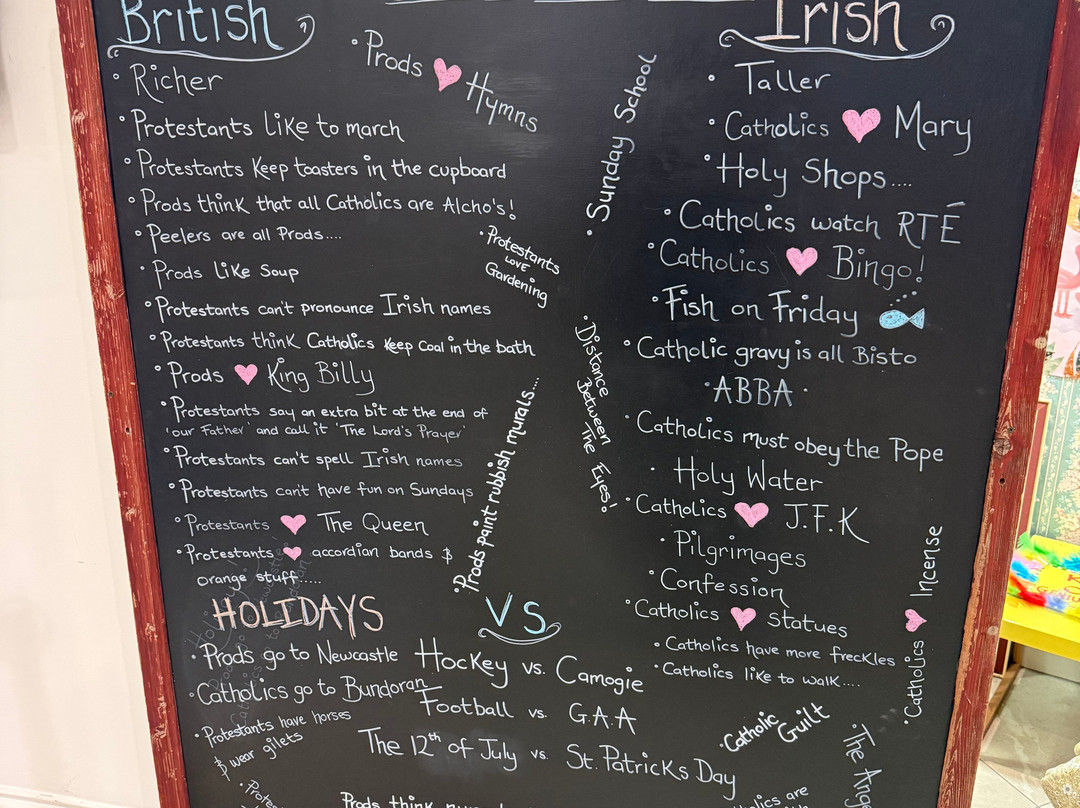 British
• Richer
• Protestants like to march
• Protestants keep toasters in the cupboard
• Prods think that all Catholics are Alcho's!
• Peelers are all Prods....
• Prods like Soup
• Protestants can't pronounce Irish names
• Protestants think Catholics keep coal in the bath
• Prods ♥ King Billy
• Protestants say an extra bit at the end of
'our Father' and call it 'The Lord's Prayer'
• Protestants can't spell Irish names
• Protestants can't have fun on Sundays
• Protestants ♥ The Queen
• Protestants ♥ accordian bands &
orange stuff.....
• Prods ♥ Hymns
• Sunday School
• Protestants
LOVE
Gardening
• Distance
Between
The Eyes!
• Prods paint rubbish murals...
Irish
• Taller
• Catholics ♥ Mary
• Holy Shops....
• Catholics watch RTÉ
• Catholics ♥ Bingo!
• Fish on Friday
• Catholic gravy is all Bisto
• ABBA •
• Catholics must obey the Pope
• Holy Water
• Catholics ♥ J.F.K
• Pilgrimages
• Confession
• Catholics ♥ Statues
• Catholics have more freckles
• Catholics like to walk....
• Catholics ♥ Incense
HOLIDAYS
• Prods go to Newcastle
• Catholics go to Bundoran
• Protestants have horses
& wear gilets
VS
Hockey vs. Camogie
Football vs. G.A.A
The 12th of July vs. St. Patricks Day
• Catholic
Guilt
The
Prods think
are